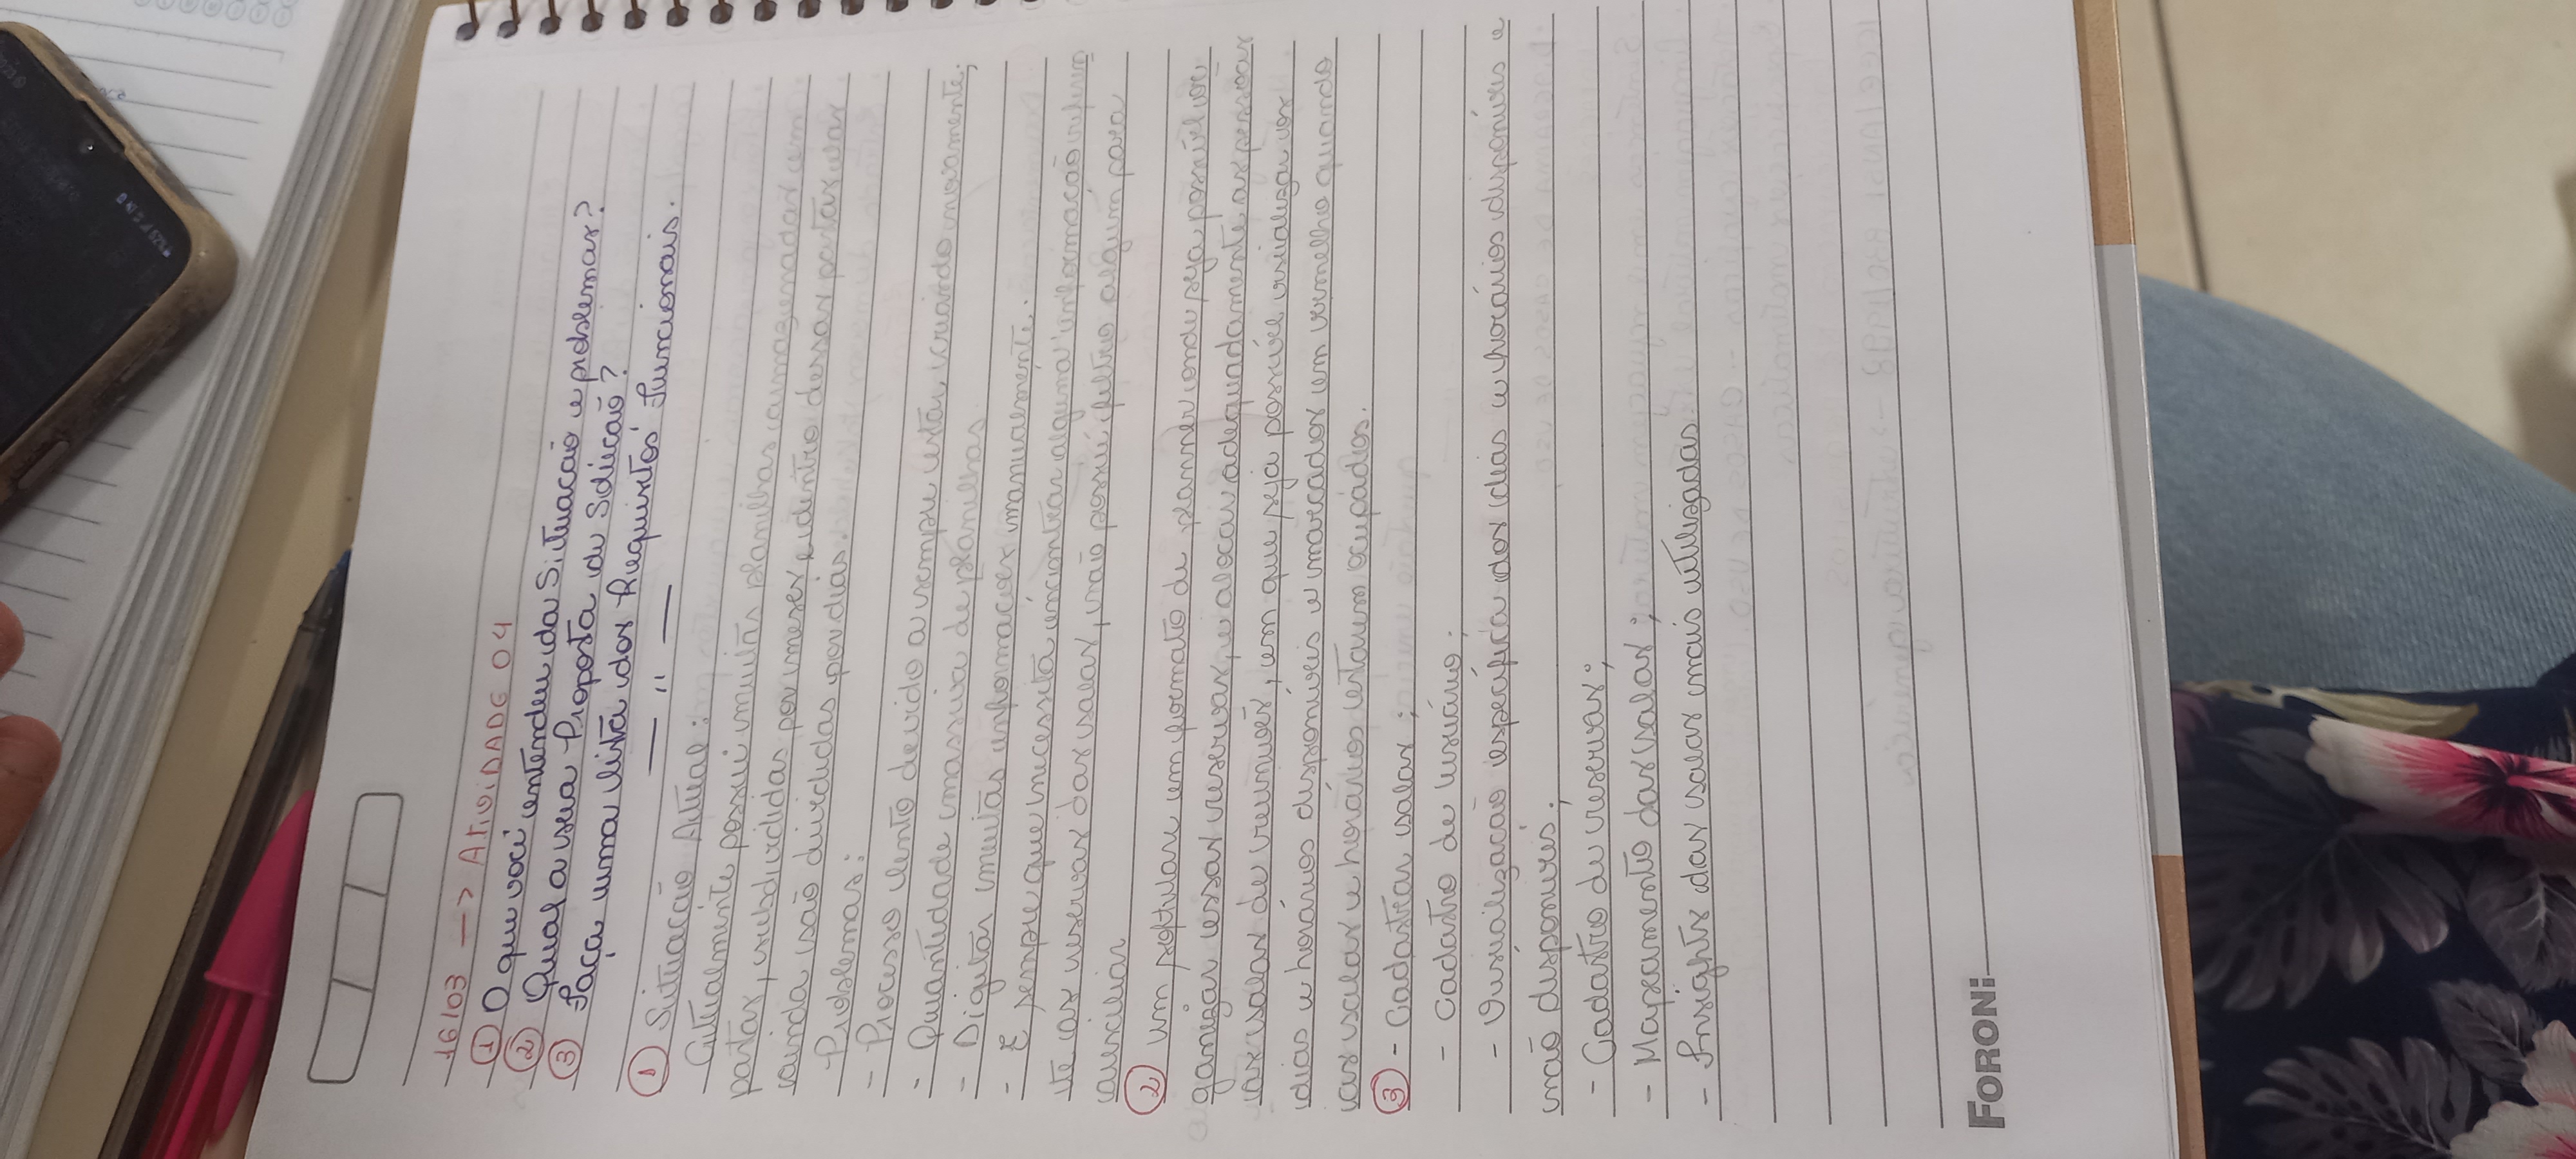 16/03 -> ATIVIDADE 04
① O que você entendeu da Situacão e problemas?
② Qual a sua Proposta de Solucão?
③ Faça uma lista dos Requisitos Funcionais.
— " —
① Situacão Atual:
Atualmente possui muitas planilhas armazenadas em
pastas, subdivididas por meses e dentro dessas pastas elas
ainda são divididas por dias.
Problemas:
- Processo lento devido a sempre estar criando novamente;
- Quantidade massiva de planilhas
- Digitar muitas informacoes manualmente.
- E sempre que necessita encontrar alguma informacão referen
te as reservas das salas, não possui filtro algum para
auxiliar
② Um software em formato de planner onde seja possivel or
ganizar essas reservas, e alocar adequadamente as pessoas
as salas de reuniões, em que seja possivel visualizar os
dias e horários disponiveis e marcados em vermelho quando
as salas e horários estarem ocupados.
③ - Cadastrar salas;
- Cadastro de usuário;
- Visualizacão especifica dos dias e horários disponiveis e
não disponiveis;
- Cadastro de reservas;
- Mapeamento das salas;
- Insights das salas mais utilizadas.
FORONI